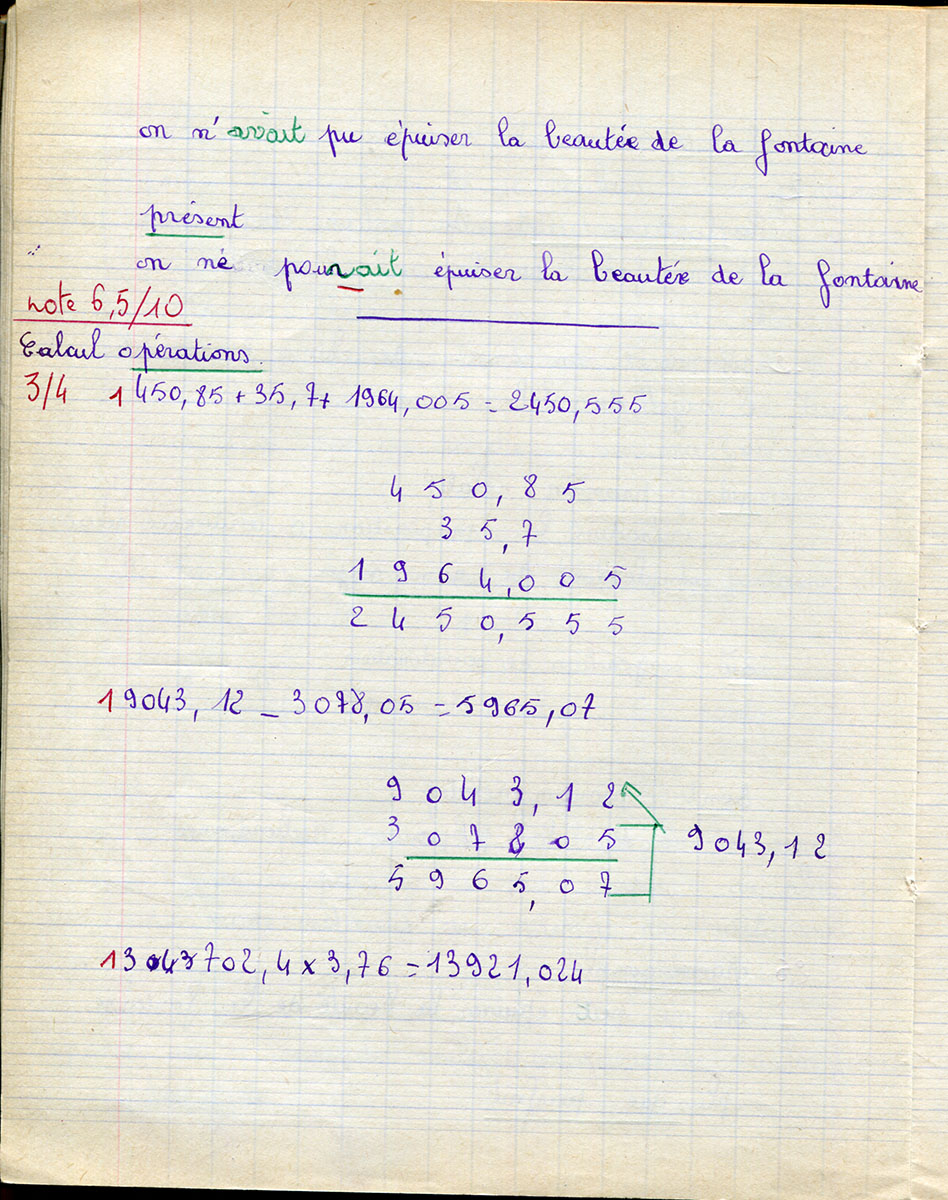 on n'avait pu épuiser la beautée de la fontaine
présent
on ne pouvait épuiser la beautée de la fontaine
note 6,5/10
Calcul opérations.
3/4 1 450,85 + 35,7 + 1964,005 = 2450,555
450,85
35,7
1964,005
2450,555
1 9043,12 - 3078,05 = 5965,07
9043,12
3078 05 9043,12
5965,07
1 3702,4 x 3,76 = 13921,024